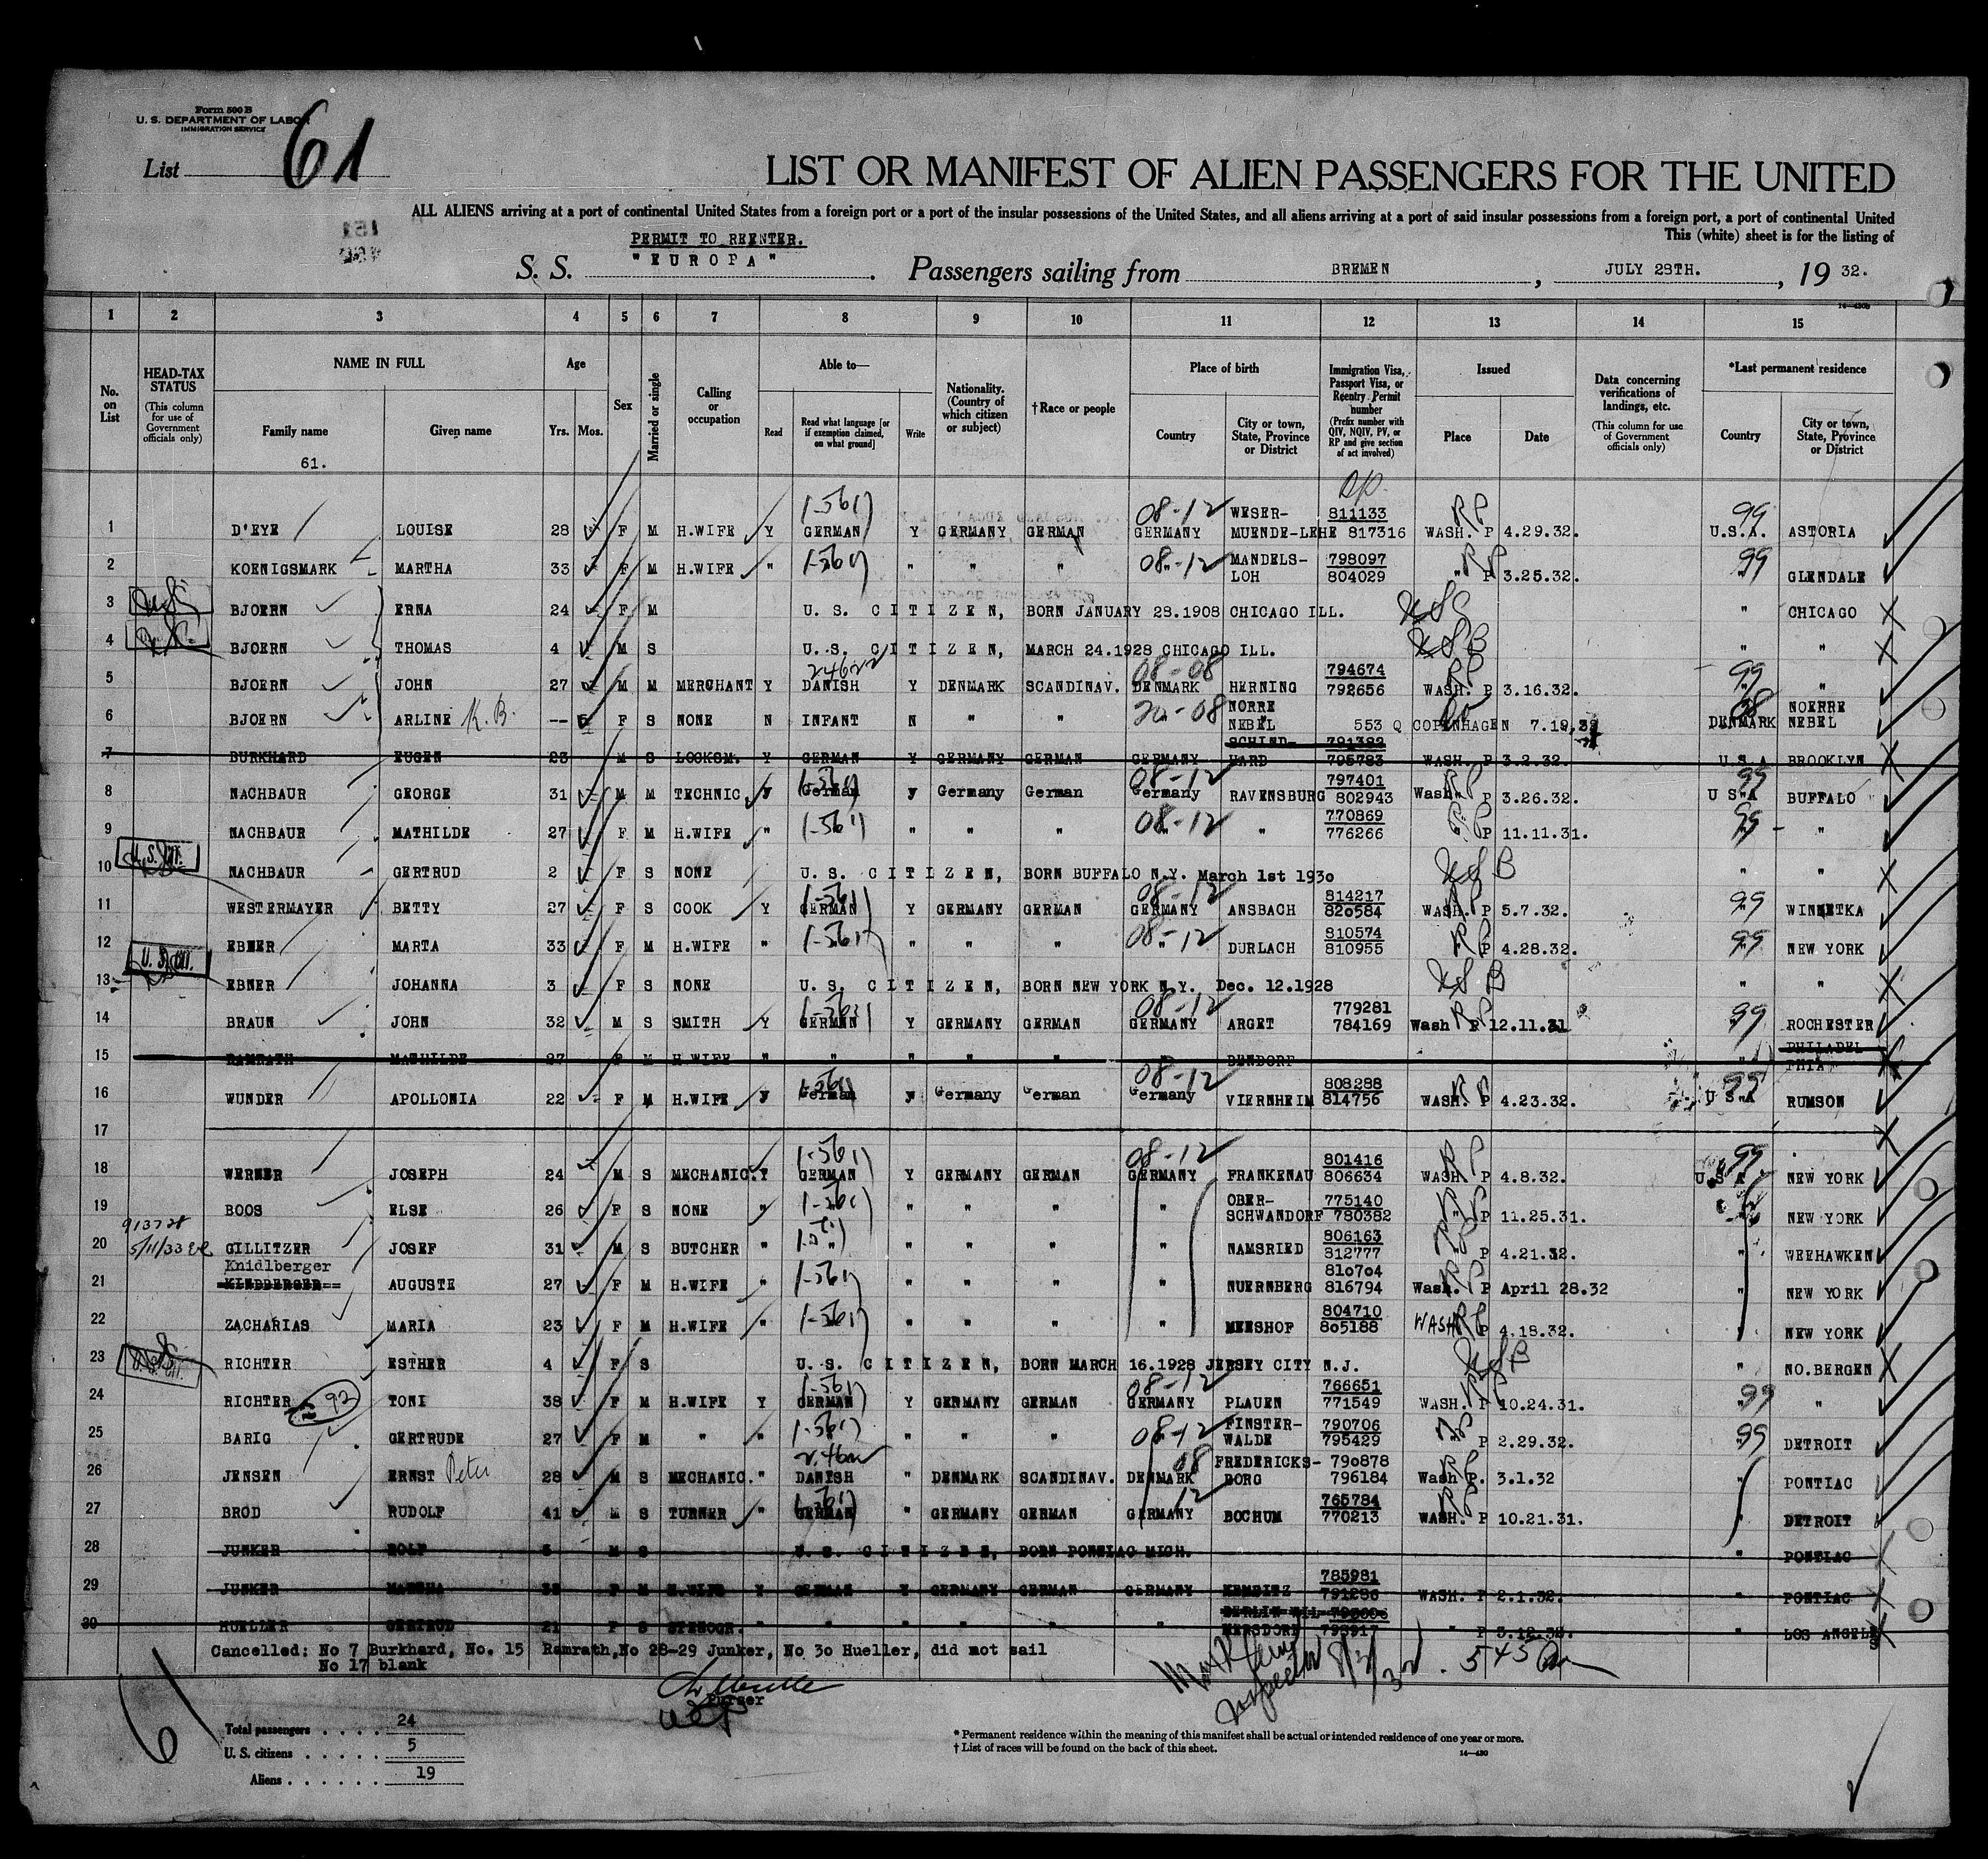 Form 500 B
U. S. DEPARTMENT OF LABOR
IMMIGRATION SERVICE
List 61
LIST OR MANIFEST OF ALIEN PASSENGERS FOR THE UNITED
ALL ALIENS arriving at a port of continental United States from a foreign port or a port of the insular possessions of the United States, and all aliens arriving at a port of said insular possessions from a foreign port, a port of continental United
This (white) sheet is for the listing of
PERMIT TO REENTER.
S. S. "EUROPA". Passengers sailing from BREMEN, JULY 28TH., 1932.
14—430b
1 2 3 4 5 6 7 8 9 10 11 12 13 14 15
No. on List
HEAD-TAX STATUS (This column for use of Government officials only)
NAME IN FULL
Family name
61.
Given name
Age
Yrs. Mos.
Sex
Married or single
Calling or occupation
Able to—
Read
Read what language [or if exemption claimed, on what ground]
Write
Nationality. (Country of which citizen or subject)
†Race or people
Place of birth
Country
City or town, State, Province or District
Immigration Visa, Passport Visa, or Reentry Permit number (Prefix number with QIV, NQIV, PV, or RP and give section of act involved)
Issued
Place
Date
Data concerning verifications of landings, etc. (This column for use of Government officials only)
*Last permanent residence
Country
City or town, State, Province or District
1 D'EYE LOUISE 28 F M H.WIFE Y GERMAN Y GERMANY GERMAN 08-12 GERMANY WESER-MUENDE-LEHE 811133 817316 WASH. RP 4.29.32. 99 U.S.A. ASTORIA
2 KOENIGSMARK MARTHA 33 F M H.WIFE " " " " 08-12 MANDELS-LOH 798097 804029 " RP 3.25.32. 99 GLENDALE
3 BJOERN ERNA 24 F M U. S. CITIZEN, BORN JANUARY 28.1908 CHICAGO ILL. USC " CHICAGO
4 BJOERN THOMAS 4 M S U. S. CITIZEN, MARCH 24.1928 CHICAGO ILL. USB " "
5 BJOERN JOHN 27 M M MERCHANT Y DANISH Y DENMARK SCANDINAV. 08-08 DENMARK HERNING 794674 792656 WASH. RP 3.16.32. 99 " "
6 BJOERN ARLINE K.B. -- 5 F S NONE N INFANT N " " NORRE NEBEL 553 Q COPENHAGEN 7.19.32 08 DENMARK NOERRE NEBEL
7 BURKHARD EUGEN 23 M S LOCKSM. Y GERMAN Y GERMANY GERMAN GERMANY SCHIND-HARD 791382 795783 WASH. P 3.2.32. U.S.A BROOKLYN
8 NACHBAUR GEORGE 31 M M TECHNIC. Y German Y Germany German 08-12 Germany RAVENSBURG 797401 802943 Wash. RP 3.26.32. 99 U S A BUFFALO
9 NACHBAUR MATHILDE 27 F M H.WIFE " " " " 08-12 " 770869 776266 P 11.11.31. 99 "
10 U.S. CIT. NACHBAUR GERTRUD 2 F S NONE U. S. CITIZEN, BORN BUFFALO N.Y. March 1st 1930 USB " "
11 WESTERMAYER BETTY 27 F S COOK Y GERMAN Y GERMANY GERMAN 08-12 GERMANY ANSBACH 814217 820584 WASH. RP 5.7.32. 99 WINNETKA
12 EBNER MARTA 33 F M H.WIFE " " " " 08-12 DURLACH 810574 810955 RP 4.28.32. 99 NEW YORK
13 U.S. CIT. EBNER JOHANNA 3 F S NONE U. S. CITIZEN, BORN NEW YORK N.Y. Dec. 12.1928 USB " "
14 BRAUN JOHN 32 M S SMITH Y GERMAN Y GERMANY GERMAN 08-12 GERMANY ARGET 779281 784169 Wash RP 12.11.31 99 ROCHESTER
15 RAMRATH MATHILDE 27 F M H.WIFE " " " " " " DENDORF " PHILADEL PHIA
16 WUNDER APOLLONIA 22 F M H.WIFE Y German Y Germany German 08-12 Germany VIERNHEIM 808288 814756 WASH. RP 4.23.32. 99 U S A RUMSON
17
18 WERNER JOSEPH 24 M S MECHANIC. Y GERMAN Y GERMANY GERMAN 08-12 GERMANY FRANKENAU 801416 806634 WASH. RP 4.8.32. 99 U.S.A NEW YORK
19 BOOS ELSE 26 F S NONE " " " " " " OBER-SCHWANDORF 775140 780382 RP 11.25.31. " NEW YORK
20 5/11/33 GILLITZER JOSEF 31 M S BUTCHER " " " " " " NAMSRIED 806163 812777 P 4.21.32. " WEEHAWKEN
21 Knidlberger KINDBERGER AUGUSTE 27 F M H.WIFE " " " " " NUERNBERG 810704 816794 Wash. RP April 28.32 " NEW YORK
22 ZACHARIAS MARIA 23 F M H.WIFE " " " " " MEESHOF 804710 805188 WASH RP 4.18.32. NEW YORK
23 RICHTER ESTHER 4 F S U. S. CITIZEN, BORN MARCH 16.1928 JERSEY CITY N.J. USB " NO.BERGEN
24 RICHTER 92 TONI 38 F M H.WIFE Y GERMAN Y GERMANY GERMAN 08-12 GERMANY PLAUEN 766651 771549 WASH. RP 10.24.31. 99 "
25 BARIG GERTRUDE 27 F M " " " " " 08-12 FINSTER-WALDE 790706 795429 P 2.29.32. 99 DETROIT
26 JENSEN ERNST Peter 28 M S MECHANIC. " DANISH " DENMARK SCANDINAV. 08 DENMARK FREDERICKS-BORG 790878 796184 Wash RP. 3.1.32 " PONTIAC
27 BROD RUDOLF 41 M S TURNER " GERMAN " GERMANY GERMAN 12 GERMANY BOCHUM 765784 770213 WASH. RP 10.21.31. " DETROIT
28 JUNKER ROLF 5 M S U. S. CITIZEN, BORN PONTIAC MICH. " PONTIAC
29 JUNKER F M H.WIFE Y GERMAN Y GERMANY GERMAN GERMANY 785981 791286 WASH. P 2.1.32. " PONTIAC
30 HUELLER GERTRUD 21 F S STENOGR. " " " " " " P 3.12.32. " LOS ANGELES
Cancelled: No 7 Burkhard, No. 15 Ramrath, No 28-29 Junker, No 30 Hueller, did not sail
No 17 blank
Purser
Inspector 8/3/32. 545
61
Total passengers . . . . 24
U. S. citizens . . . . . 5
Aliens . . . . . . 19
* Permanent residence within the meaning of this manifest shall be actual or intended residence of one year or more.
† List of races will be found on the back of this sheet.
14—430